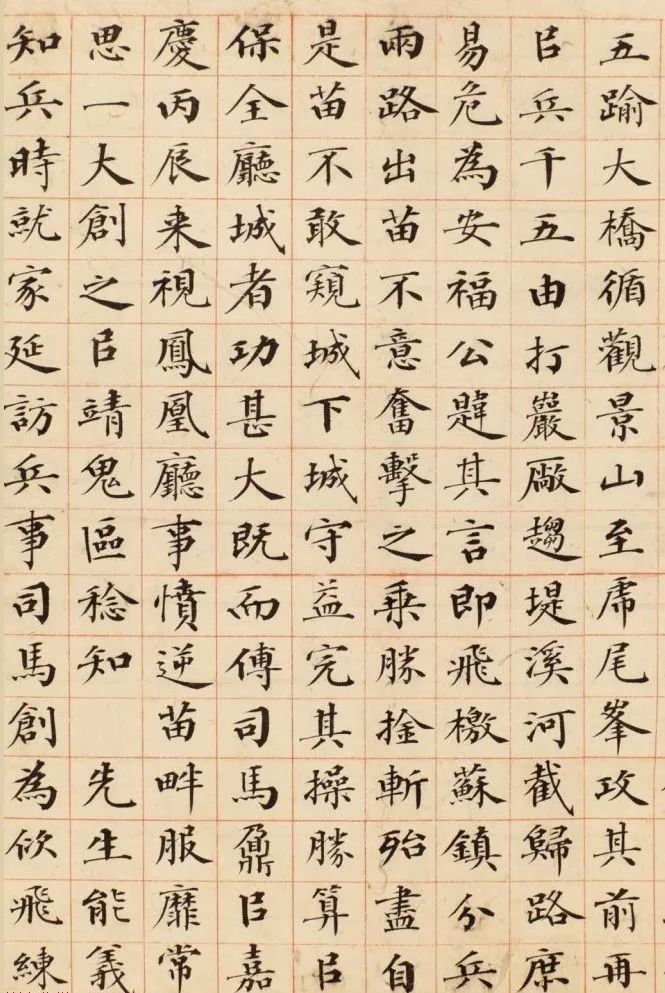 五踰大橋循觀景山至虎尾峯攻其前再
㠯兵千五由打巖厰趨堤溪河截歸路庶
易危為安福公韙其言即飛檄蘇鎮分兵
兩路出苗不意奮擊之乗勝擒斬殆盡自
是苗不敢窺城下城守益完其操勝算㠯
保全廳城者功甚大既而傅司馬鼐㠯嘉
慶丙辰来視鳳凰廳事憤逆苗畔服靡常
思一大創之㠯靖鬼區稔知先生能義
知兵時就家延訪兵事司馬創為佽飛練